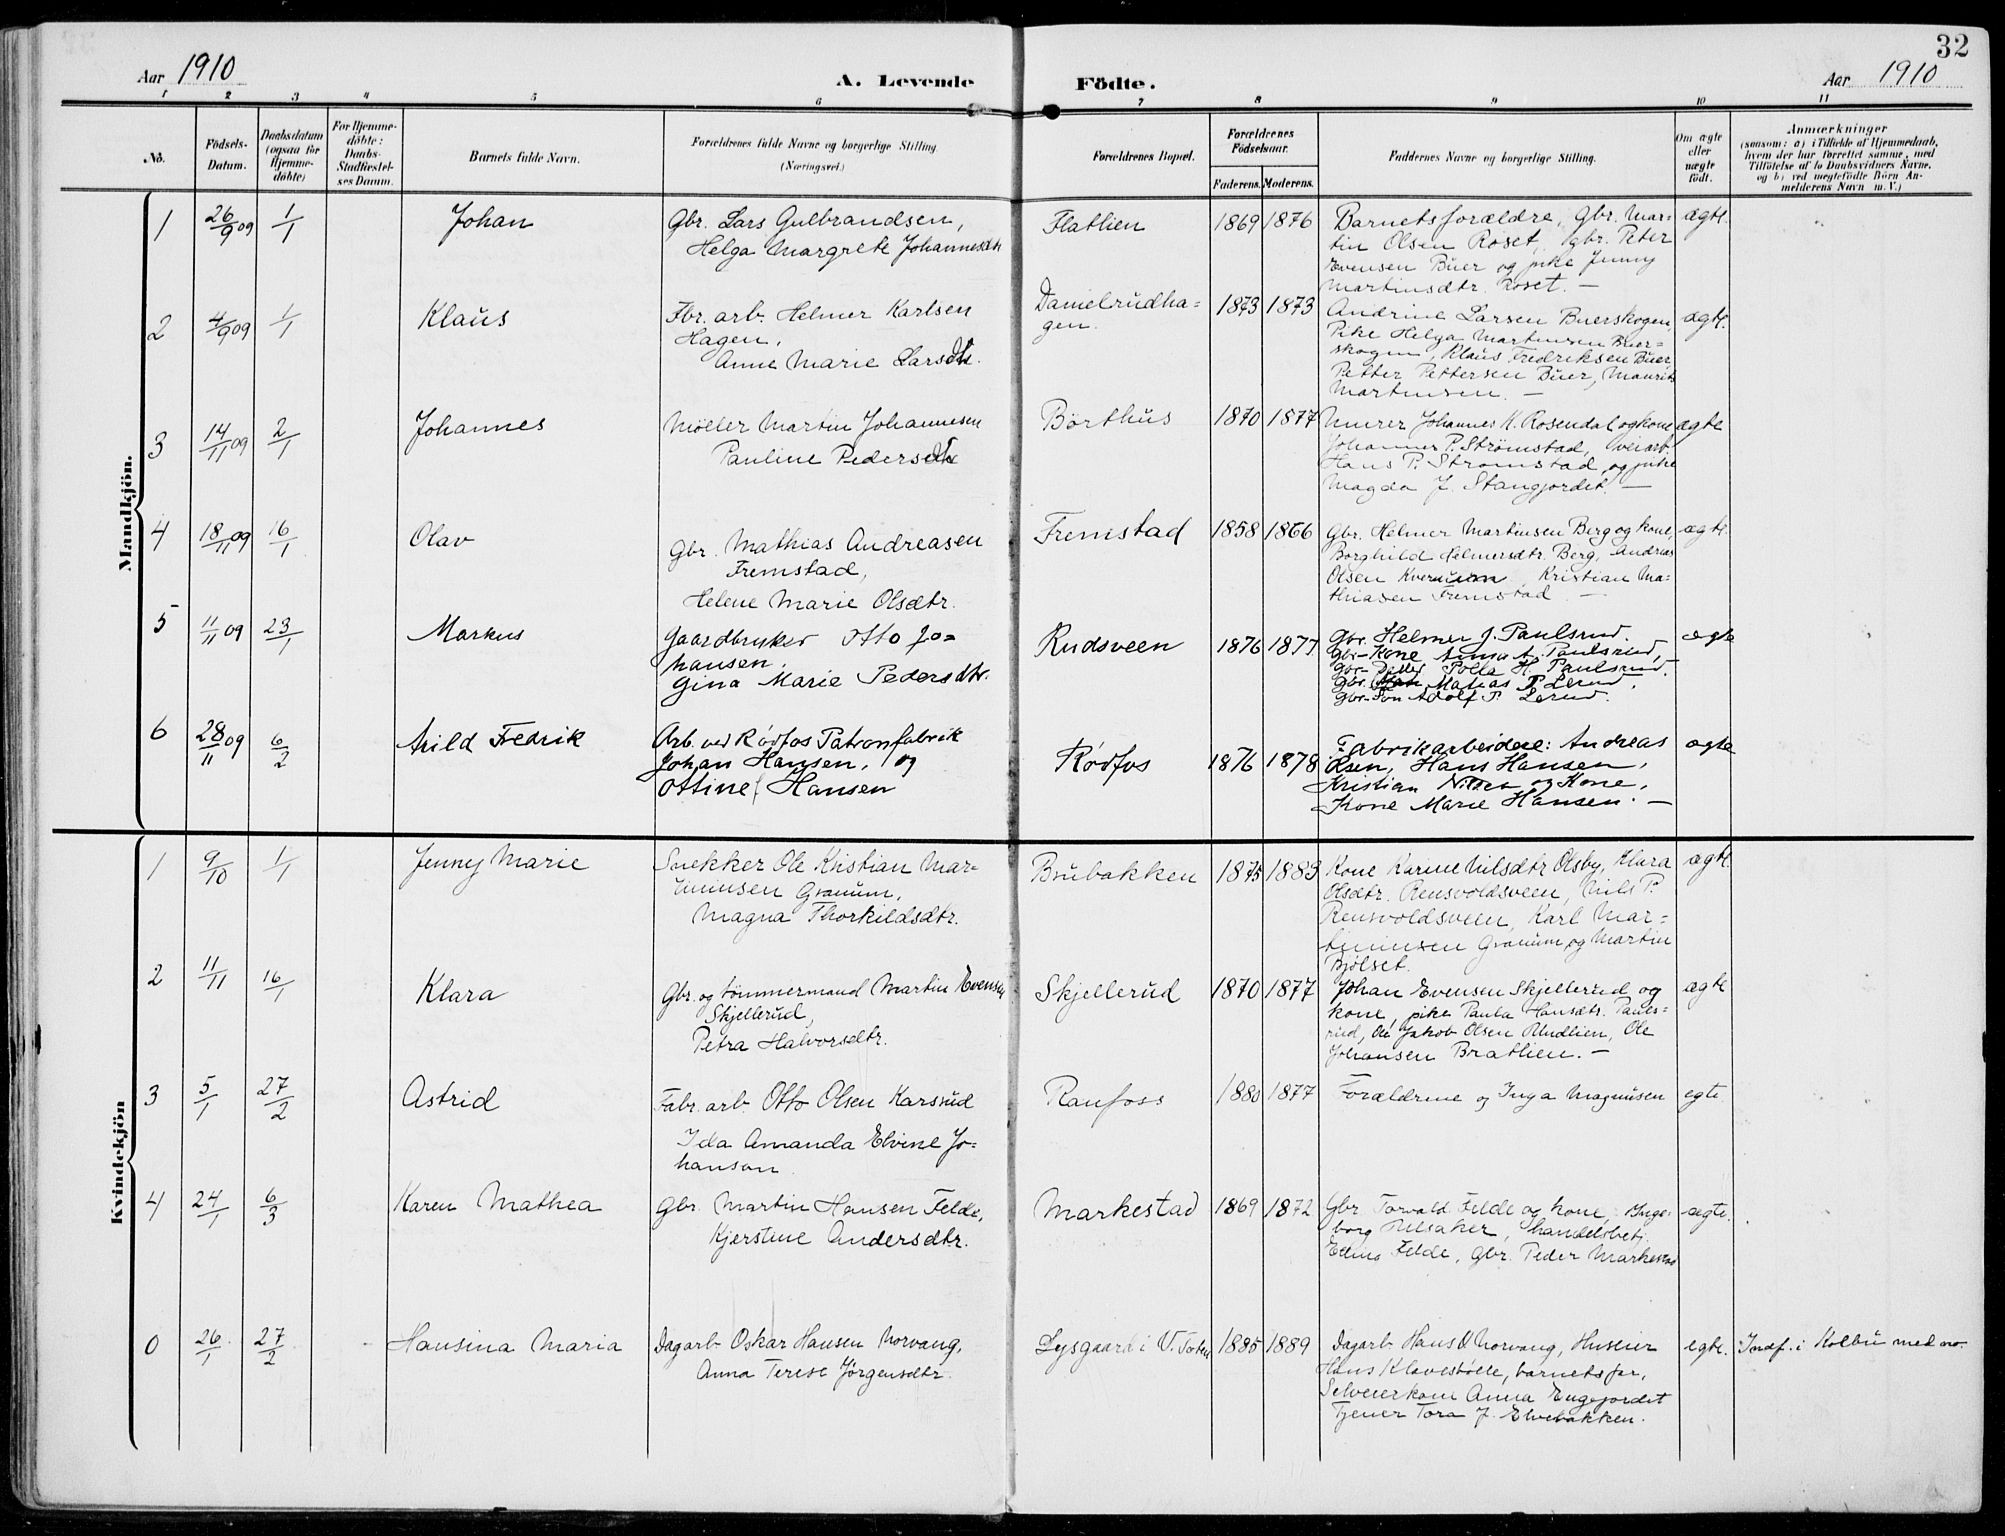 32
Aar 1910
A. Levende
Födte.
Aar 1910
1 2 3 4 5 6 7 8 9 10 11
No.
Födsels-
Datum.
Daabsdatum
(ogsaa for
Hjemme-
döbte)
For Hjemme-
döbte:
Daabs-
Stadfæstel-
ses Datum.
Barnets fulde Navn.
Forældrenes fulde Navne og borgerlige Stilling
(Næringsvei.)
Forældrenes Bopæl.
Forældrenes
Födselsaar.
Faderens. Moderens.
Faddernes Navne og borgerlige Stilling.
Om ægte
eller
uægte
födt.
Anmærkninger
(saasom: a) i Tilfælde af Hjemmedaab,
hvem der har forrettet samme, med
Tilföielse af to Daabsvidners Navne,
og b) ved uægtefödte Börn An-
melderens Navn m. V.)
Mandkjön.
1 26/9 09 1/1 Johan
Gbr. Lars Gulbrandsen,
Helga Margrete Johannesdtr
Flatlien 1869 1876
Barnets forældre, Gbr. Mar-
tin Olsen Roset, gbr. Peter
Evensen Büer og pike Jenny
Martinsdtr. Roset. —
ægte.
2 4/9 09 1/1 Klaüs
Fbr. arb. Helmer Karlsen
Hagen,
Anne Marie Larsdtr.
Danielrüdha-
gen. 1873 1873
Andrine Larsen Buerskogen,
Pike Helga Martinsen Buer-
skogen, Klaüs Fredriksen Büer
Petter Pettersen Büer, Maurits
Martinsen. —
ægte.
3 14/11 09 2/1 Johannes
Möller Martin Johannesen
Pauline Pedersdtr
Börthüs 1870 1877
Murer Johannes K. Rosendal og kone
Johannes P. Strömstad, veiarb.
Hans P. Strömstad og pike
Magda J. Stangjordet. —
ægte
4 18/11 09 16/1 Olav
Gbr. Mathias Andreasen
Fremstad,
Helene Marie Olsdtr.
Fremstad 1858 1866
Gbr. Helmer Martinsen Berg og kone,
Borghild Helmersdtr. Berg, Andreas
Olsen Kvernüm, Kristian Ma-
thiasen Fremstad —
ægte.
5 11/11 09 23/1 Markus
Gaardbruker Otto Jo-
hansen,
Gina Marie Pedersdtr.
Rudsveen 1876 1877
Gbr. Helmer J. Paulsrud.
Gbr-Kone Anna A. Paulsrud,
Gbr- Polla H. Paulsrud.
Gbr. Matias P. Lerud,
Gbr-Søn Adolf P. Lerud.
ægte
6 28/11 09 6/2 Arild Fredrik
Arb. ved Rødfos Patronfabrik
Johan Hansen, og
Ottine Hansen
Rödfos 1876 1878
Fabrikarbeidere: Andreas
Olsen, Hans Hansen,
Kristian Nilsen og Kone,
Kone Marie Hansen. —
ægte
Kvindekjön
1 9/10 1/1 Jenny Marie
Snekker Ole Kristian Mar-
tininsen Granüm,
Magna Thorkildsdtr.
Brübakken 1875 1883
Kone Karine Nilsdtr Olsby, Klara
Olsdtr. Rensvoldsveen, Nils P.
Rensvoldsveen, Karl Mar-
tininsen Granüm, og Martin
Bjölset.
ægte.
2 11/11 16/1 Klara
Gbr. og tömmermand Martin Evensen
Skjellerüd,
Petra Halvorsdtr.
Skjellerüd 1870 1877
Johan Evensen Skjellerüd og
kone, pike Paula Hansdtr. Pauls-
rüd, Ole Jakob Olsen Rudlien, Ole
Johansen Bratlien. —
ægte
3 5/1 27/2 Astrid
Fabr. arb. Otto Olsen Karsrüd
Ida Amanda Elvine Jo-
hanson
Raufoss 1880 1877
Forældrene og Inga Magnüsen
egte.
4 24/1 6/3 Karen Mathea
Gbr. Martin Hansen Felde,
Kjerstine Andersdtr.
Markestad 1869 1872
Gbr Torvald Felde og kone, Inge-
borg Ulsaker, handelsbetj.
Felde, Gbr. Peder Markestad
ægte.
0 26/1 27/2 Hansina Maria
Dagarb Oskar Hansen Norvang,
Anna Terese Jörgensdtr.
Lysgaard i V. Toten 1885 1889
Dagarb Hans Norvang, Huseier
Hans Klavestölle, barnets far,
Selveierkone Anna Engejordet
Tjener Tora J. Elvebakken.
egte.
Indf. i Kolbu med no.